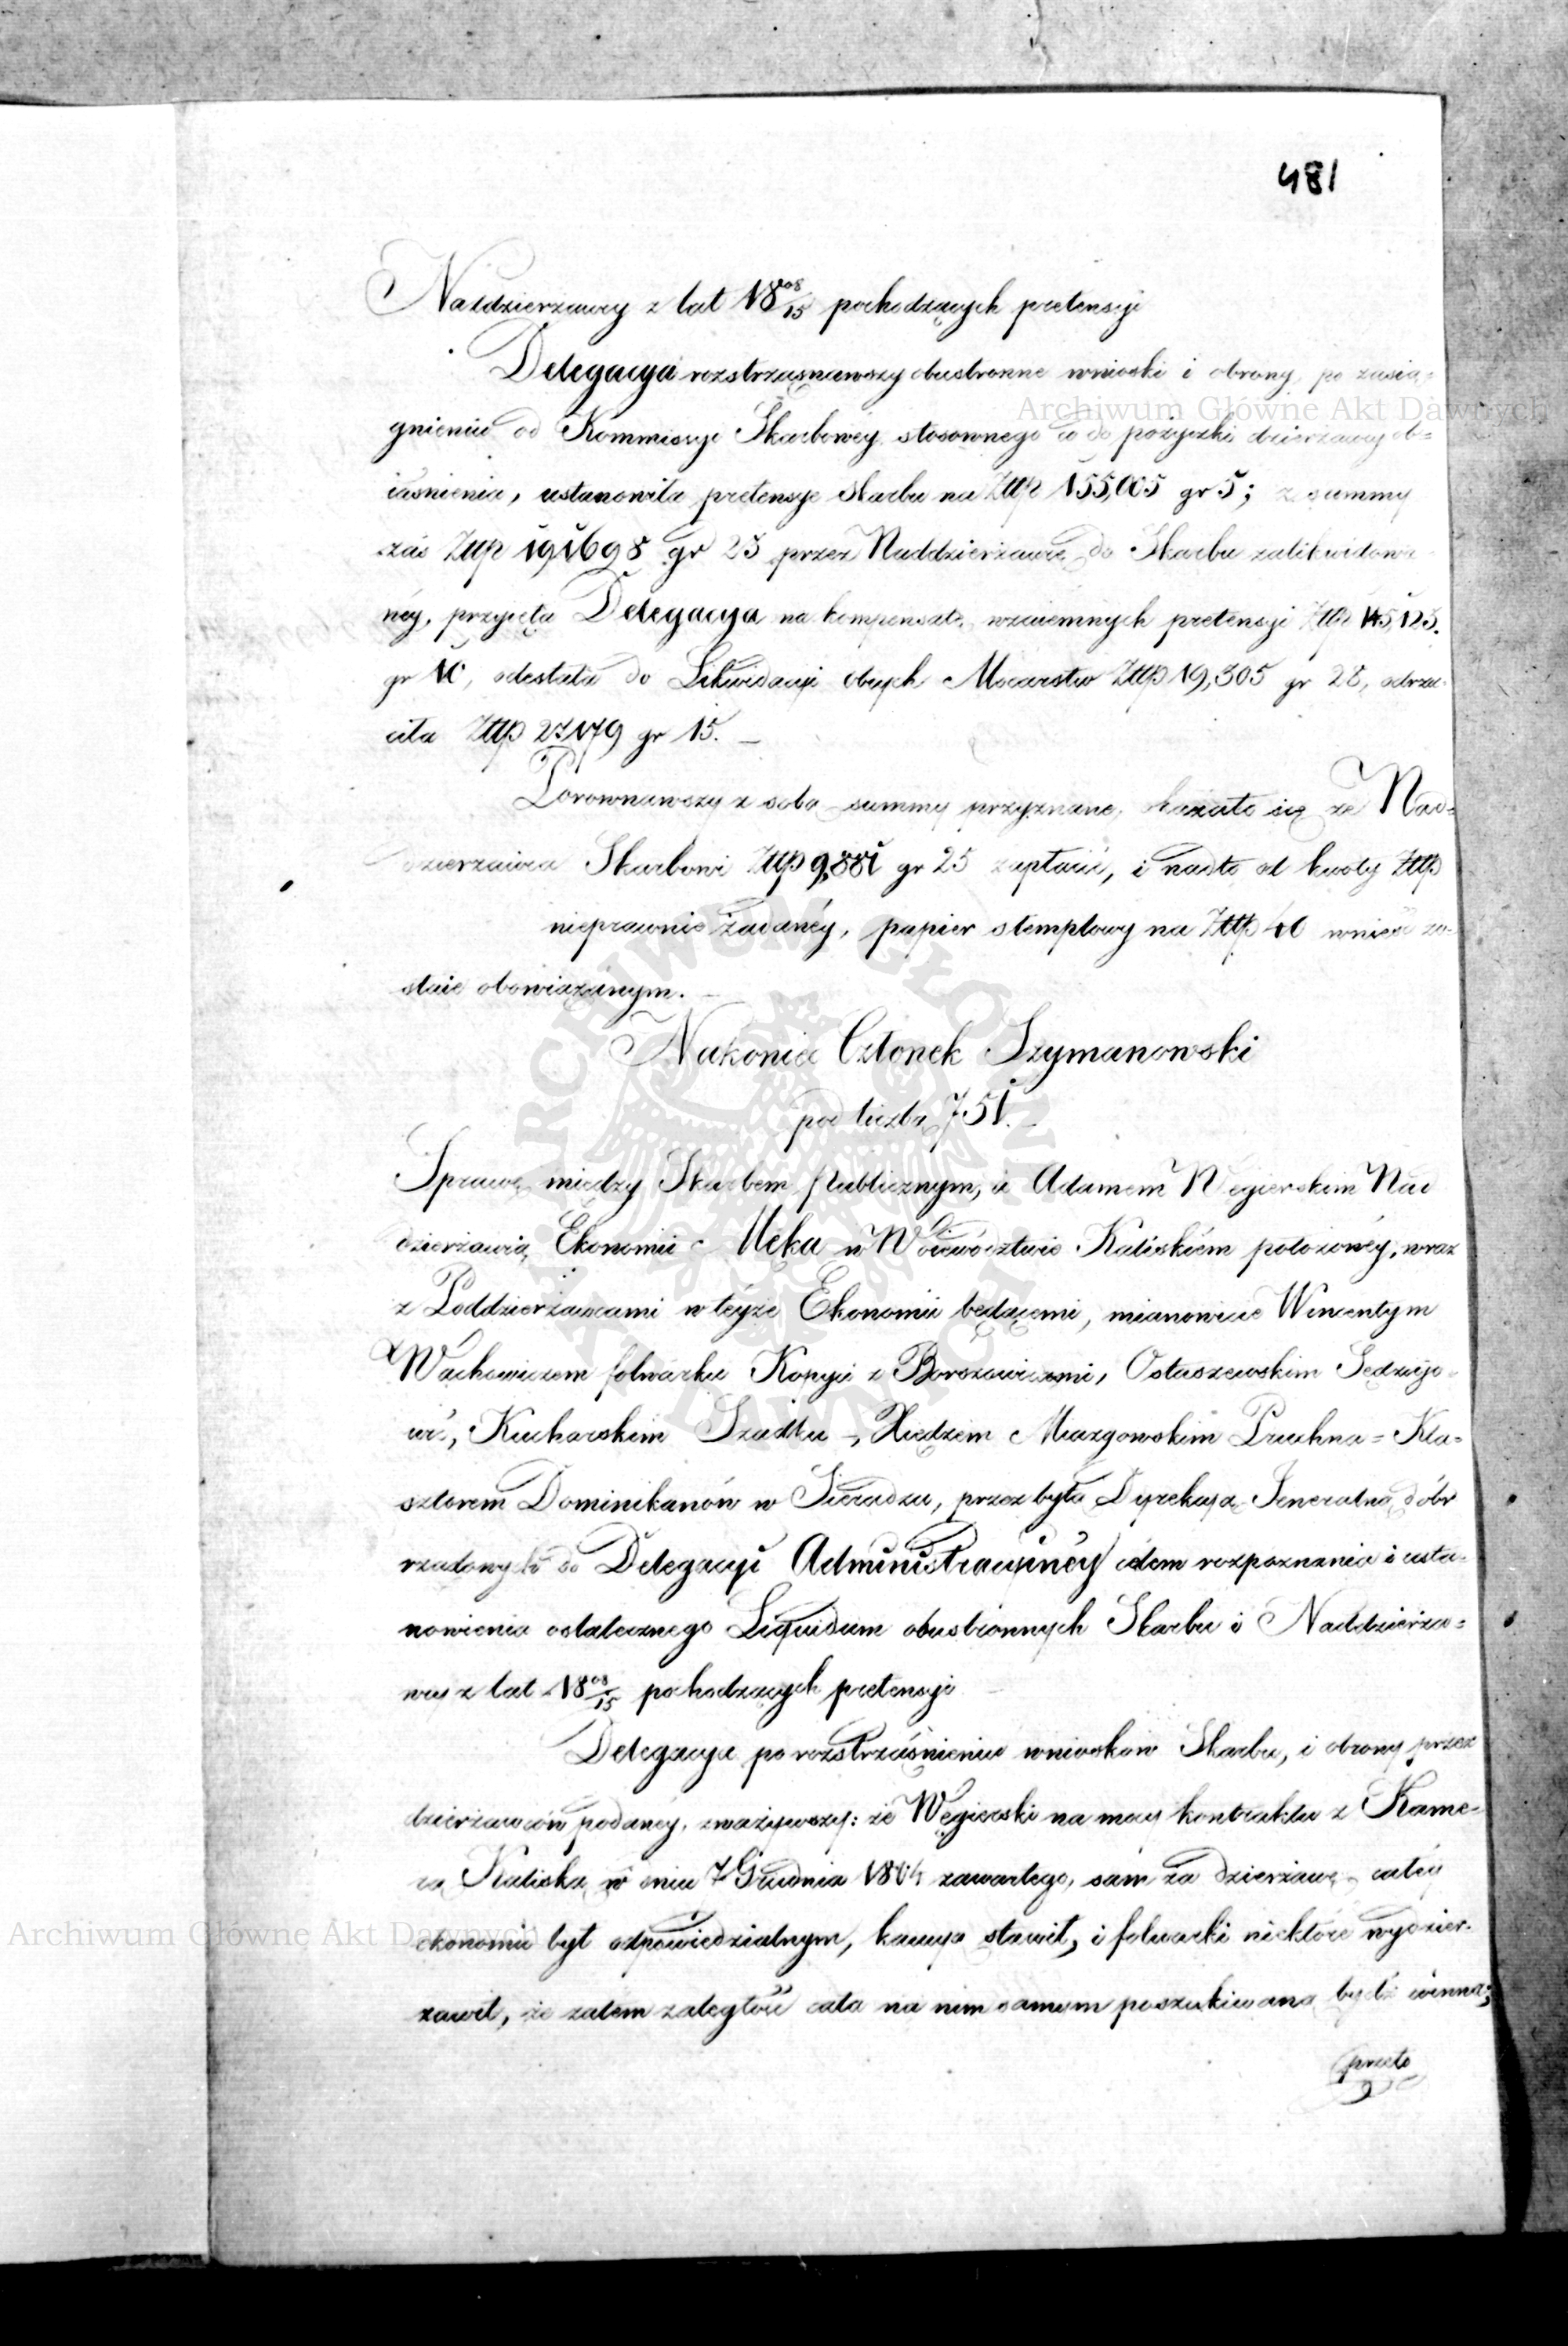 481
Naddzierżawcy z lat 18 08/15 pochodzących pretensyi
Delegacya rozstrząsnąwszy obustronne wnioski i obrony, po zasią=
gnieniu od Kommissyi Skarbowéy stosownego co do pożyczki dzierżawy ob=
iaśnienia, ustanowiła pretensye Skarbu na Złłp 155,005 gr 5; z summy
zaś Złłp 191698 gr 23 przez Naddzierżawcę do Skarbu zalikwidowa=
néy, przyięła Delegacya na kompensatę wzaiemnych pretensyi Złłp 145,123.
gr 10, odesłała do Likwidacyi obcych Mocarstw Złłp 19,305 gr 28, odrzu=
ciła Złłp 27179 gr 15. —
Porownawszy z sobą summy przyznane, okazało się że Nad=
dzierżawca Skarbowi Złłp 9,881 gr 25 zapłacić, i nadto od kwoty Złłp
nieprawnie żądanéy, papier stemplowy na Złłp 40 wnieść zo=
staie obowiązanym. —
Nakoniec Członek Szymanowski
pod liczbą 751. —
Sprawę między Skarbem Publicznym, a Adamem Węgierskim Nad
dzierżawcą Ekonomii Męka w Woiewództwie Kaliskiém położonéy, wraz
z Poddzierżawcami w téyże Ekonomii będącemi, mianowicie Wincentym
Wachowiczem folwarku Kopyi z Borszowicami, Ostaszewskim Sędzieio=
wic, Kucharskim Szadku —, Xiędzem Miazgowskim Pruchna = Kla=
sztorem Dominikanów w Sieradzu, przez byłą Dyrekcyą Jeneralną dóbr
rządowych do Delegacyi Administracyinéy celem rozpoznania i usta=
nowienia ostatecznego Liquidum obustronnych Skarbu i Naddzierża=
wcy z lat 18 08/15 pochodzących pretensyi —
Delegacya po rozstrząśnieniu wniosków Skarbu, i obrony przez
dzierżawców podanéy, zważywszy: że Węgierski na mocy kontraktu z Kame=
rą Kaliską w dniu 7 Grudnia 1804 zawartego, sam za dzierżawę całéy
ekonomii był odpowiedzialnym, kaucyą stawił, i folwarki niektóre wydzier=
żawił, że zatem zaległość cała na nim samym poszukiwaną bydź winna;
przeto
Archiwum Główne Akt Dawnych
Archiwum Główne Akt Dawnych